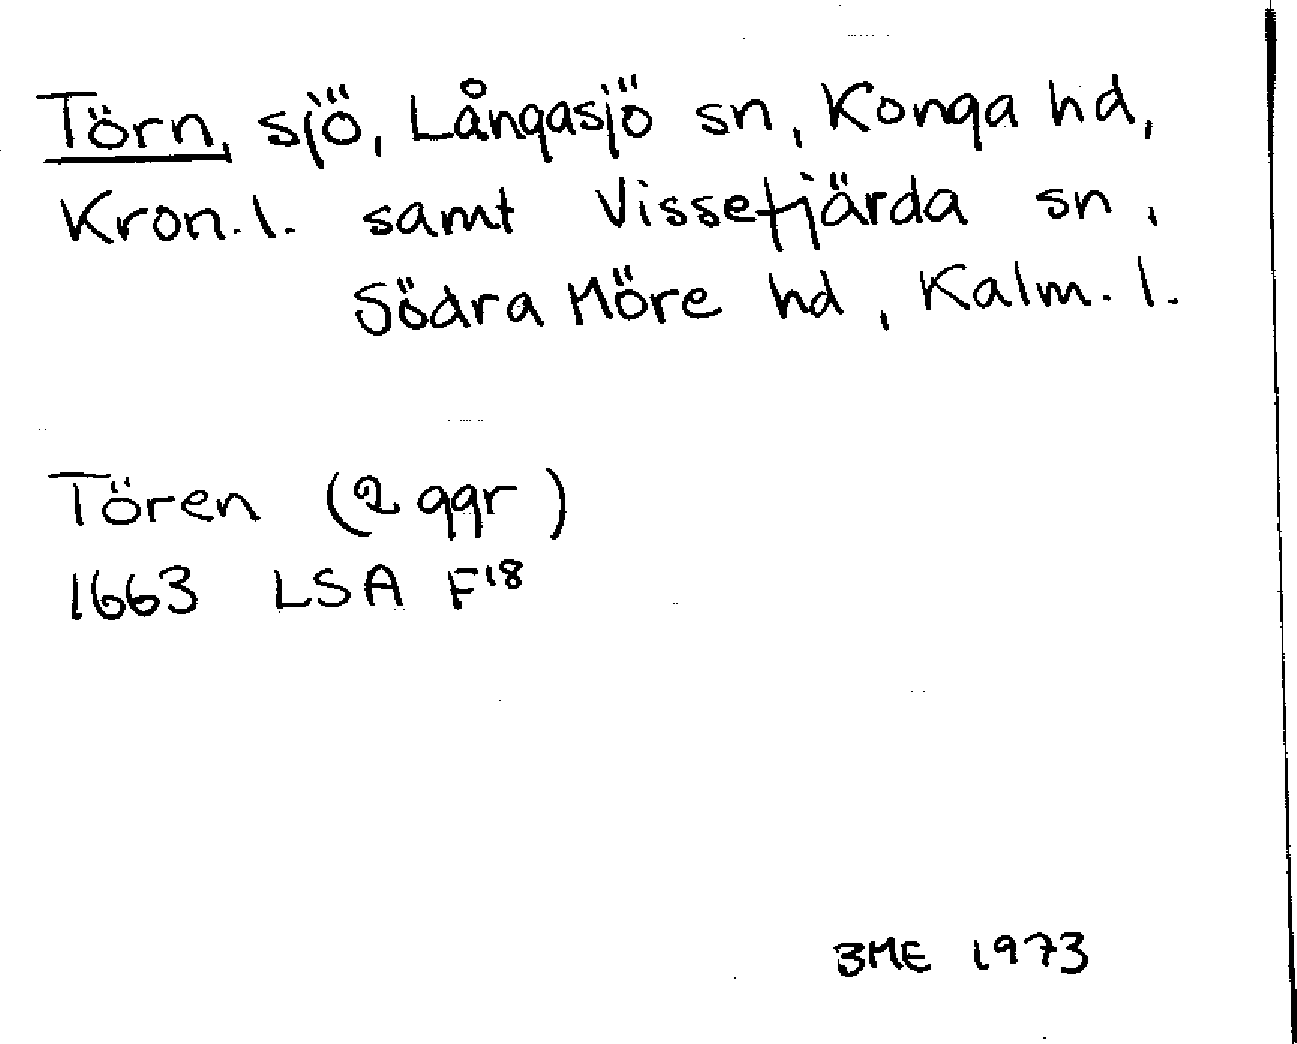 Törn, sjö, Långasjö sn, Konga hd,
Kron. l. samt Vissefjärda sn,
Södra Möre hd, Kalm. l.
Tören (2 ggr)
1663 LSA F18
BME 1973